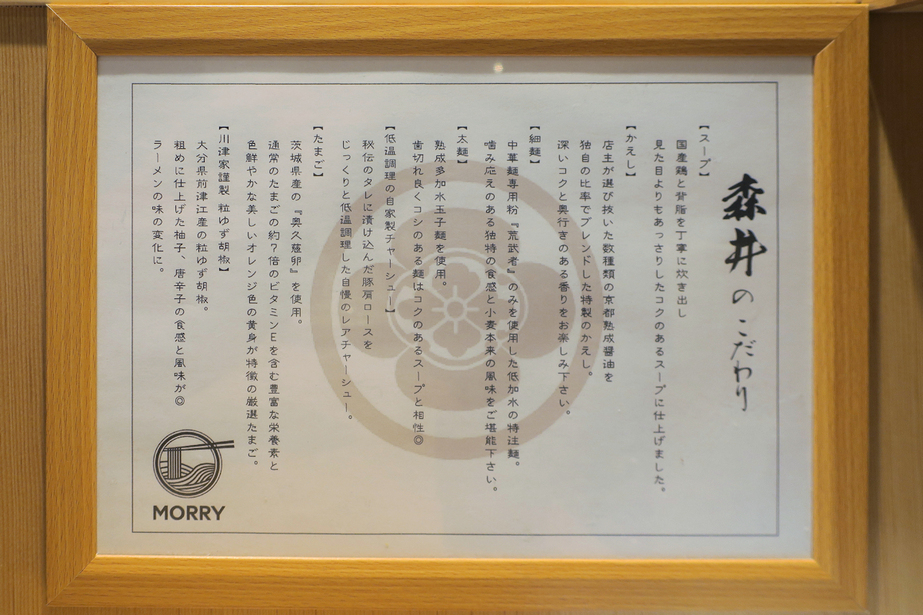 森井のこだわり
【スープ】
国産鶏と背脂を丁寧に炊き出し
見た目よりもあっさりしたコクのあるスープに仕上げました。
【かえし】
店主が選び抜いた数種類の京都熟成醤油を
独自の比率でブレンドした特製のかえし。
深いコクと奥行きのある香りをお楽しみ下さい。
【細麺】
中華麺専用粉『荒武者』のみを使用した低加水の特注麺。
噛み応えのある独特の食感と小麦本来の風味をご堪能下さい。
【太麺】
熟成多加水玉子麺を使用。
歯切れ良くコシのある麺はコクのあるスープと相性◎
【低温調理の自家製チャーシュー】
秘伝のタレに漬け込んだ豚肩ロースを
じっくりと低温調理した自慢のレアチャーシュー。
【たまご】
茨城県産の『奥久慈卵』を使用。
通常のたまごの約7倍のビタミンEを含む豊富な栄養素と
色鮮やかな美しいオレンジ色の黄身が特徴の厳選たまご。
【川津家謹製 粒ゆず胡椒】
大分県前津江産の粒ゆず胡椒。
粗めに仕上げた柚子、唐辛子の食感と風味が◎
ラーメンの味の変化に。
MORRY